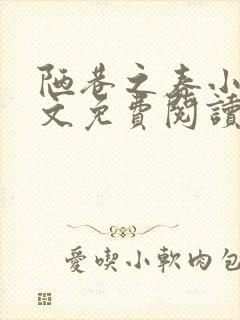 陋巷之春小
文免費閱讀
愛喫小軟肉包